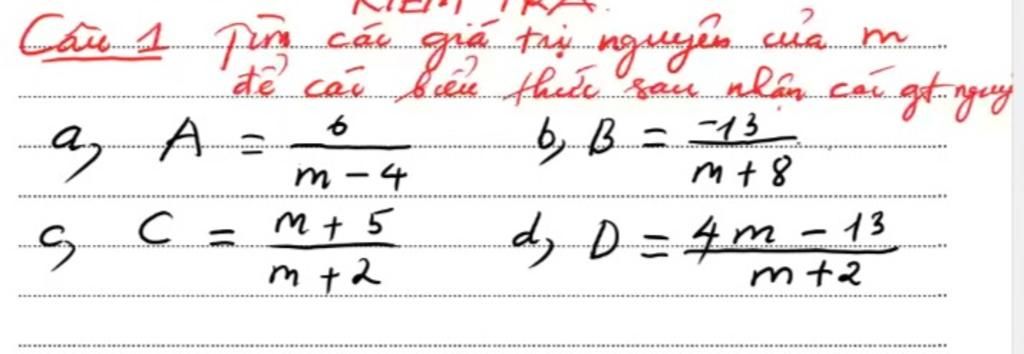 KIỂM TRA
Câu 1 Tìm các giá trị nguyên của m
để các biểu thức sau nhận các gt nguy
a, A = 6 / (m - 4) b, B = -13 / (m + 8)
c, C = (m + 5) / (m + 2) d, D = (4m - 13) / (m + 2)